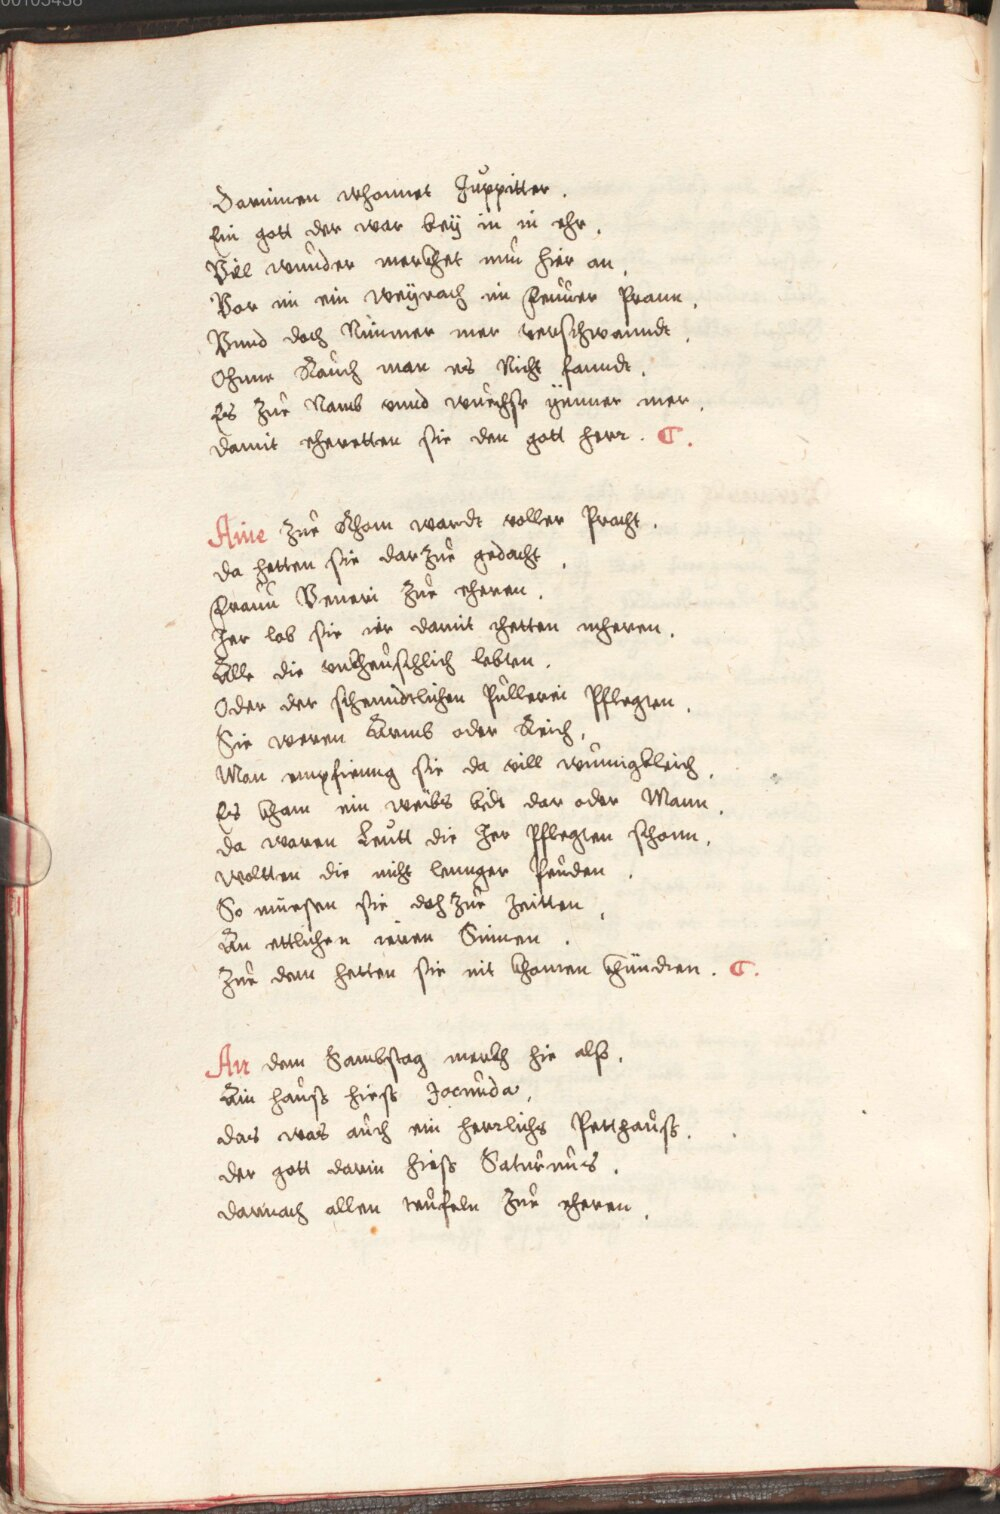 00105438
Darinnen whonnet Juppitter.
Ein gott der war bey in in ehr.
Vill wunder merckhet nun hier an.
Vor im ein Weyrach im Feuwer Prann.
Vnnd doch Nimmer mer verschwanndt.
Ohnne Rauch man es Nicht fanndt.
Es Zue Namb vnnd wuechsse ÿmmer mer.
Damit eheretten sie den gott herr. C.
Aine Zue Rhom wardt voller Pracht.
Da hetten sie darZue gedacht.
Frauw Veneri Zue eheren.
Jer lob sie ier damit hetten meheren.
Alle die vnkheuschlich lebten.
Oder der schenndtlichen Püllerei Pflegten.
Sie weren Armb oder Reich.
Man empfienng sie da vill wunigkleich.
Es kham ein weibs bildt dar oder Mann.
Da waren Leutt die Jer Pflegten schonn.
Woltten die nicht lennger Peüden.
So muesen sie doh Zue zeitten.
An ettlichen ieren Sinnen.
Zue dem hetten sie nit khomen khündten. C.
An dem Sambstag merckh hie alß.
Ain hauß hieß Jocunda.
das was auch ein herrlichs Petthauß.
der gott darin hieß Saturnus.
darnach allen teufeln Zue eheren.